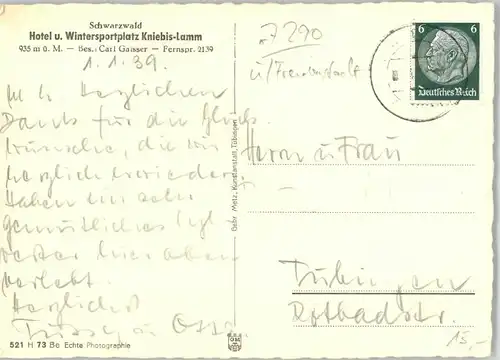 Schwarzwald
Hotel u. Wintersportplatz Kniebis-Lamm
935 m ü. M. – Bes.: Carl Gaisser – Fernspr. 2139
1.1.39.
Herzlichen
Dank für die Glück-
wünsche, die wir
herzlich erwidern.
Haben ein sehr
gemütliches Syl-
vester hier oben
verlebt.
Herzlichst
521 H 73 Be Echte Photographie
Gebr. Metz, Kunstanstalt, Tübingen
7290
u/Freudenstadt
6 6
Deutsches Reich
Herrn u Frau
Tübingen
Rotbadstr.
15,-